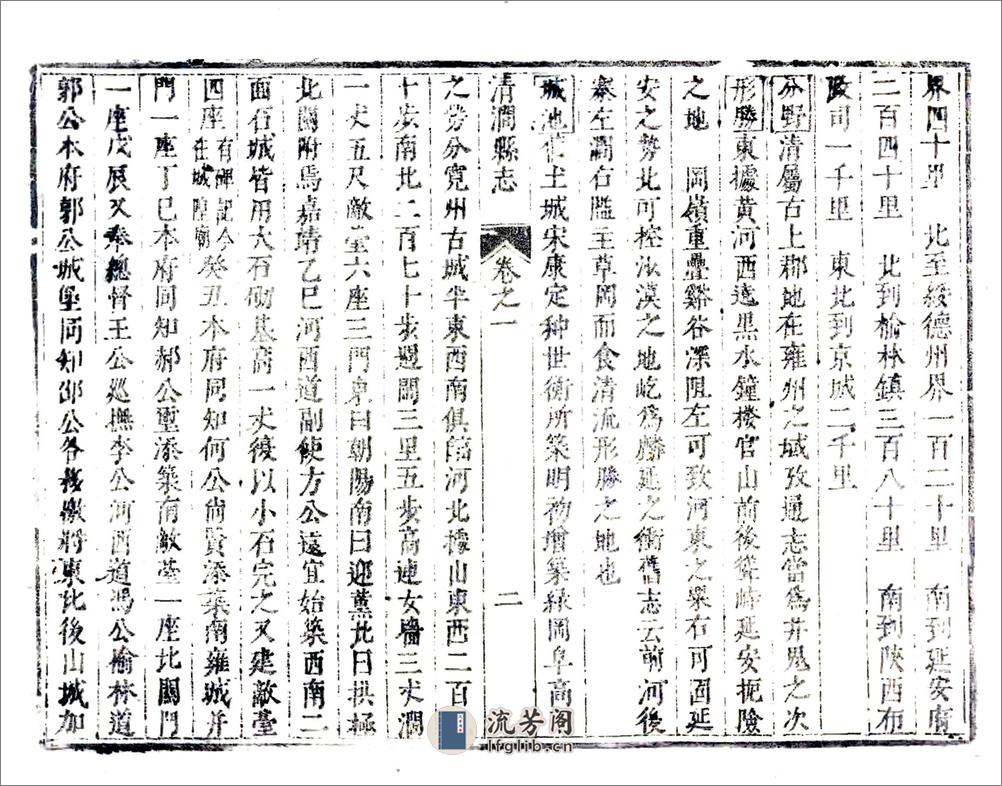 界四十里　北至綏德州界一百二十里　南到延安府
二百四十里　北到榆林鎮三百八十里　南到陝西布
政司一千里　東北到京城二千里
分野清屬古上郡地在雍州之域攷通志當爲井鬼之次
形勝東據黃河西遶黑水鐘樓官山前後聳峙延安扼險
之地　岡嶺重疊谿谷深阻左可致河東之粟右可固延
安之勢北可控沙漠之地屹爲鄜延之衝舊志云前河後
寨左澗右隘主草岡而食清流形勝之地也
城池係土城宋康定种世衡所築明初增築緣岡阜高
清澗縣志　卷之一　二
之勞分寬州古城半東西南俱臨河北據山東西二百
十步南北二百七十步週圍三里五步高連女牆三丈濶
一丈五尺敵臺六座三門東曰朝陽南曰迎薰北曰拱極
北關附焉嘉靖乙巳河西道副使方公遠宜始築西南二
面石城皆用大石砌基高一丈後以小石完之又建敵臺
四座有碑記今在城隍廟癸丑本府同知何公尚賢添築南雍城并
門一座丁巳本府同知郝公重添築南敵臺一座北關門
一座戊辰又奉總督王公巡撫李公河西道馮公榆林道
郭公本府郭公城堡同知邵公各義檄將東北後山城加
流芳阁
lfglib.cn